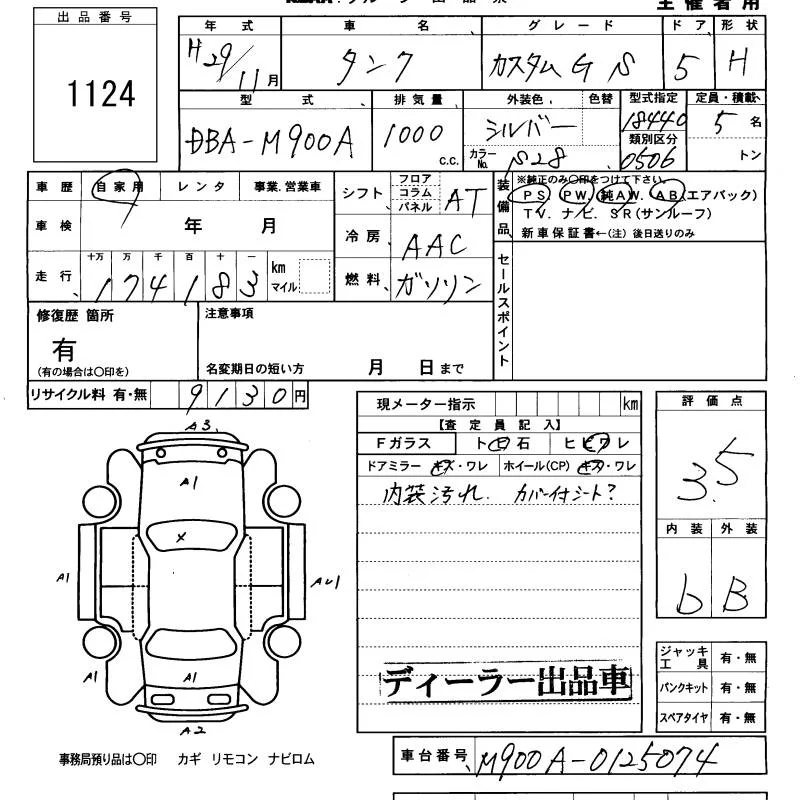 出品番号
1124
主催者用
年式 車名 グレード ドア 形状
H29/11月 タンク カスタムG S 5 H
型式 排気量 外装色 色替 型式指定 定員・積載
DBA-M900A 1000 c.c. シルバー 18440 5名
カラーNo. S28 類別区分 0506 トン
車歴 自家用 レンタ 事業.営業車
車検 年 月
走行 十万 万 千 百 十 一
174183 km マイル
シフト フロア コラム パネル AT
冷房 AAC
燃料 ガソリン
装備品
※純正のみ〇印をつけて下さい。
PS PW 純AW. AB(エアバック)
TV. ナビ. SR(サンルーフ)
新車保証書←(注) 後日送りのみ
セールスポイント
修復歴 箇所
有
(有の場合は〇印を)
注意事項
名変期日の短い方 月 日まで
リサイクル料 有・無 9130円
現メーター指示 km
【査定員記入】
Fガラス トビ石 ヒビワレ
ドアミラー キズ・ワレ ホイール(CP) キズ・ワレ
内装汚れ. カバー付シート?
評価点
3.5
内装 外装
b B
A3
A1
X
A1
AU1
A1
A1
A1
A2
ディーラー出品車
ジャッキ工具 有・無
パンクキット 有・無
スペアタイヤ 有・無
事務局預り品は〇印 カギ リモコン ナビロム
車台番号 M900A-0125074